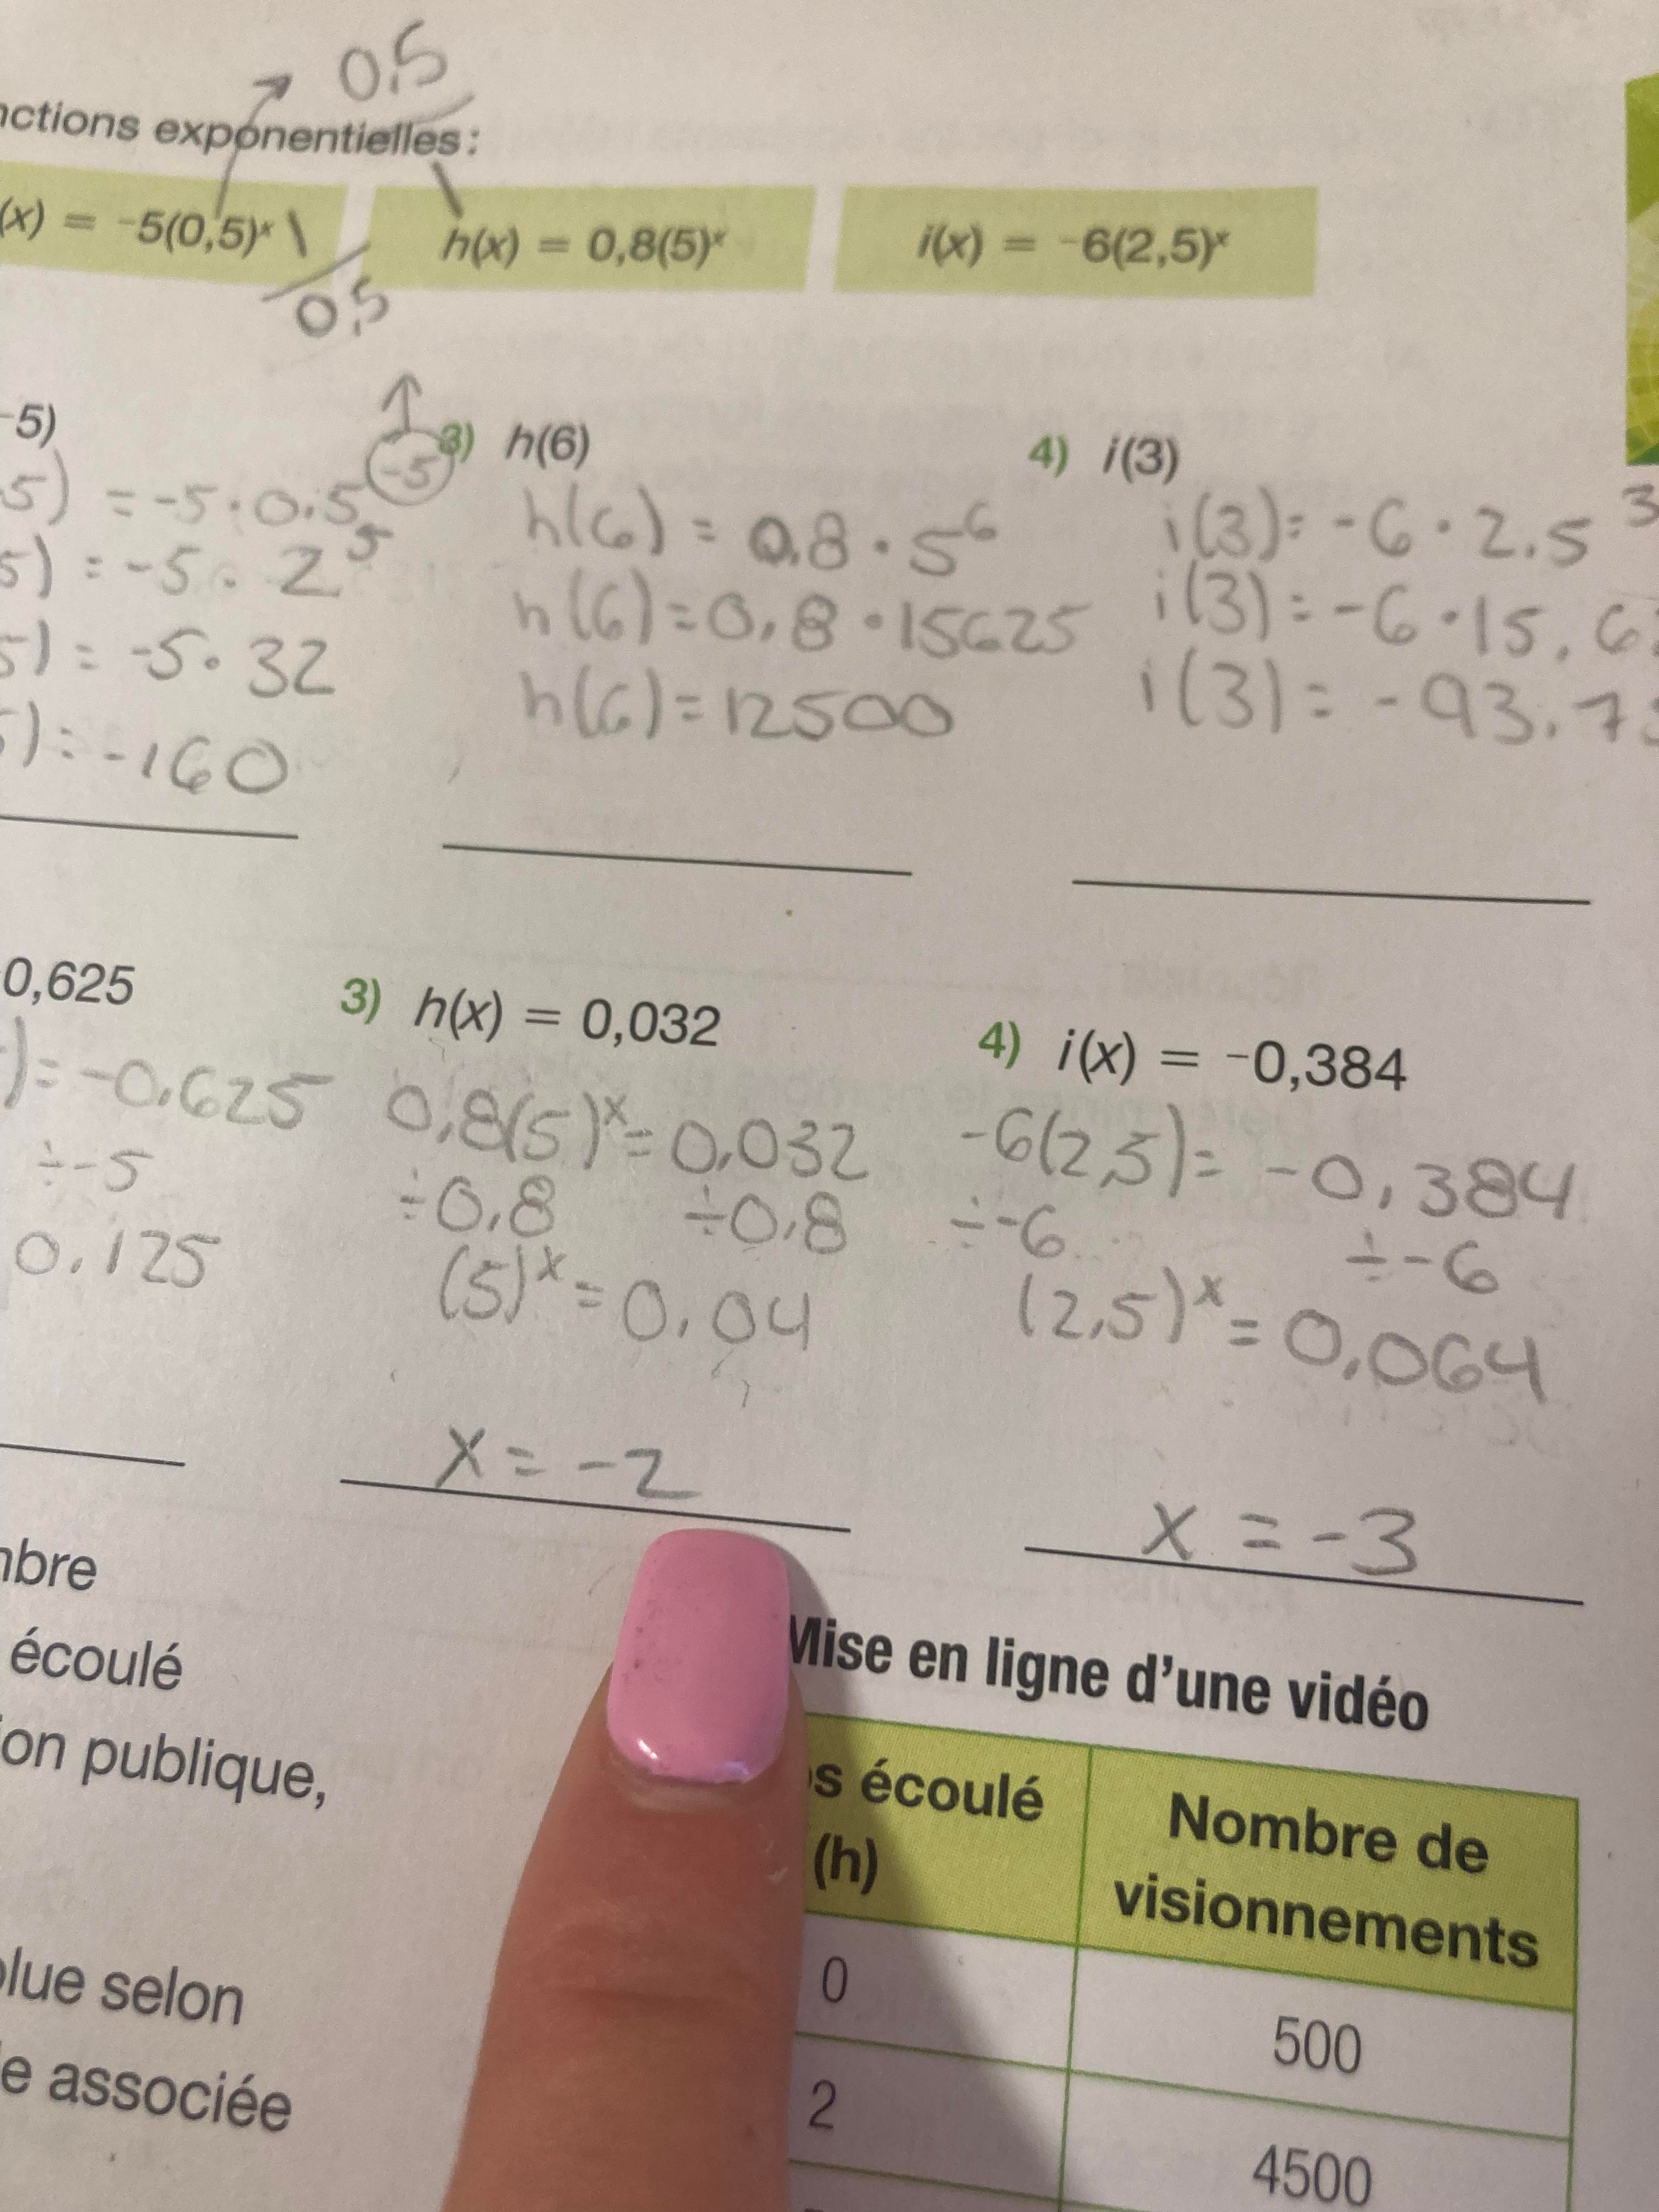 0.5
nctions exponentielles :
(x) = -5(0,5)ˣ
h(x) = 0,8(5)ˣ
i(x) = -6(2,5)ˣ
0,5
-5)
5) = -5 · 0.5 -5
5) = -5 · 2⁵
5) = -5 · 32
5) = -160
3) h(6)
h(6) = 0.8 · 5⁶
h(6) = 0,8 · 15625
h(6) = 12500
4) i(3)
i(3) = -6 · 2.5³
i(3) = -6 · 15,6
i(3) = -93.7
0,625
) = -0.625
÷-5
0.125
3) h(x) = 0,032
0,8(5)ˣ = 0,032
÷0,8 ÷0,8
(5)ˣ = 0,04
x = -2
4) i(x) = -0,384
-6(2,5) = -0,384
÷-6 ÷-6
(2,5)ˣ = 0,064
x = -3
nbre
écoulé
on publique,
lue selon
e associée
Mise en ligne d'une vidéo
s écoulé
(h)
Nombre de
visionnements
0 500
2 4500